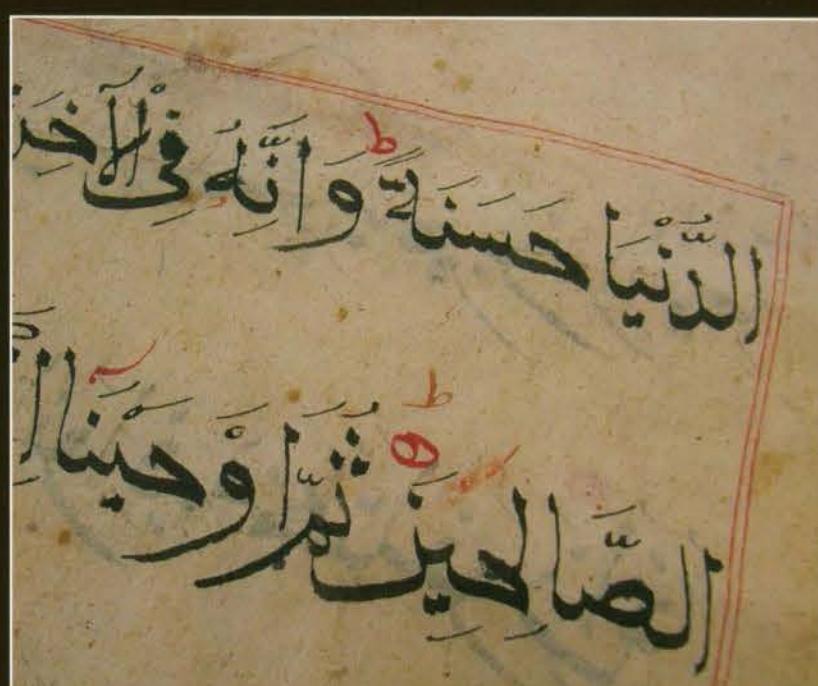 الدُّنْيَا حَسَنَةً ط وَاِنَّهُ فِى الْاٰخِرَ
الصَّالِحِيْنَ ه ط ثُمَّ اَوْحَيْنَا